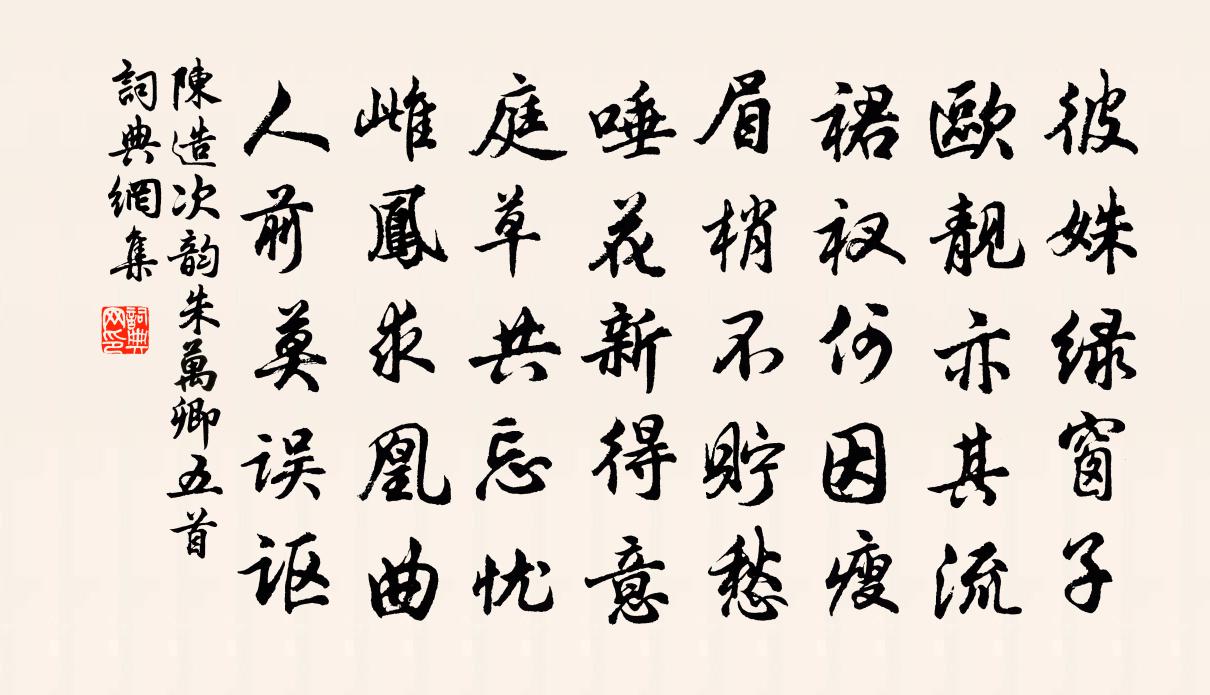 彼姝绿窗子
歐靓亦其流
裙衩何因瘦
眉梢不貯愁
唾花新得意
庭草共忘忧
雌鳳求凰曲
人前莫误讴
陳造次韵朱萬卿五首
詞典網集
詞典网印